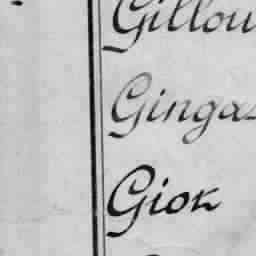 Gillou
Gingas
Giok